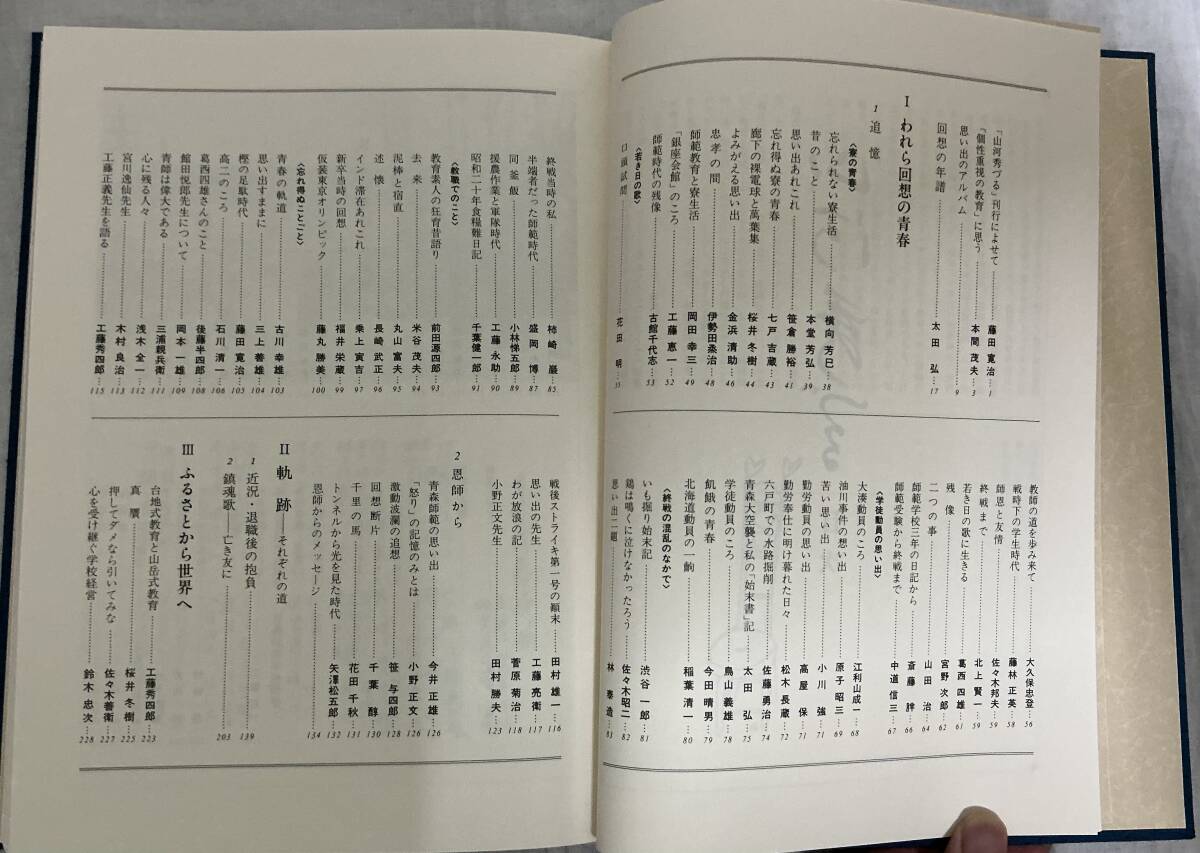 「山河秀づる」刊行によせて……藤田寛治…1
「個性重視の教育」に思う……本間茂夫…3
思い出のアルバム……9
回想の年譜……太田弘…17
I われら回想の青春
1 追憶
〈寮の青春〉
忘れられない寮生活……横向芳巳…38
昔のこと……本堂芳弘…39
思い出あれこれ……笹倉勝裕…41
忘れ得ぬ寮の青春……七戸吉蔵…43
廊下の裸電球と萬葉集……桜井冬樹…44
よみがえる思い出……金浜清助…46
忠孝の間……伊勢田粂治…48
師範教育と寮生活……岡田幸三…49
「銀座会館」のころ……工藤恵一…52
師範時代の残像……古館千代志…53
〈若き日の歌〉
口頭試問……花田明…55
教師の道を歩み来て……大久保忠登…56
戦時下の学生時代……藤林正英…58
師恩と友情……佐々木邦夫…59
終戦まで……北上賢一…59
若き日の歌に生きる……葛西四雄…61
残像……宮野次郎…62
二つの事……山田治…64
師範学校三年の日記から……斎藤…66
師範受験から終戦まで……中道信三…67
〈学徒動員の思い出〉
大湊動員のころ……江利山成一…68
油川事件の想い出……原子昭三…69
苦い思い出……小川強…71
勤労動員の思い出……高屋保…71
勤労奉仕に明け暮れた日々……松木長蔵…72
六戸町での水路掘削……佐藤勇治…74
青森大空襲と私の「始末書」記……太田弘…75
学徒動員のころ……鳥山義雄…78
飢餓の青春……今田晴男…79
北海道動員の一齣……稲葉清一…80
〈終戦の混乱のなかで〉
いも掘り始末記……渋谷一郎…81
鶏は鳴くに泣けなかったろう……佐々木昭二…82
思い出二題……林泰造…83
終戦当時の私……柿崎巌…85
半端者だった師範時代……盛岡博…87
同釜飯……小林悌五郎…89
援農作業と軍隊時代……工藤永助…90
昭和二十年食糧難日記……千葉健一郎…91
〈教職でのこと〉
教育素人の狂育昔語り……前田源四郎…93
去来……米谷茂夫…94
泥棒と宿直……丸山富夫…95
述懐……長崎武正…96
インド滞在あれこれ……乗上寅吉…97
新卒当時の回想……福井栄蔵…99
仮装東京オリンピック……藤丸勝美…100
〈忘れ得ぬことごと〉
青春の軌道……古川幸雄…103
思い出すままに……三上善雄…104
樫の足駄時代……藤田寛治…105
高二のころ……石川清一…106
葛西四雄さんのこと……後藤半四郎…108
館田悦郎先生について……岡本一雄…109
青師は偉大である……三浦親兵衛…111
心に残る人々……浅木全一…112
宮川逸仙先生……木村良治…113
工藤正義先生を語る……工藤秀四郎…115
戦後ストライキ第一号の顛末……田村雄一…116
思い出の先生……工藤亮衛…117
わが放浪の記……菅原菊治…118
小野正文先生……田村勝夫…123
2 恩師から
青森師範の思い出……今井正雄…126
「怒り」の記憶のみとは……小野正文…126
激動波瀾の追想……笹与四郎…128
回想断片……千葉醇…130
千里の馬……花田千秋…131
トンネルから光を見た時代……矢澤松五郎…132
恩師からのメッセージ……134
II 軌跡――それぞれの道
1 近況・退職後の抱負……139
2 鎮魂歌――亡き友に……203
III ふるさとから世界へ
台地式教育と山岳式教育……工藤秀四郎…223
真贋……桜井冬樹…225
押してダメなら引いてみな……佐々木善衛…227
心を受け継ぐ学校経営……鈴木忠次…228